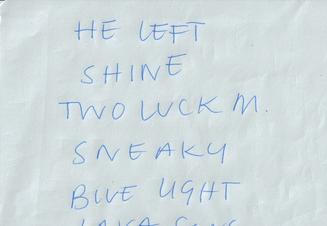 HE LEFT
SHINE
TWO LUCK M.
SNEAKY
BLUE LIGHT